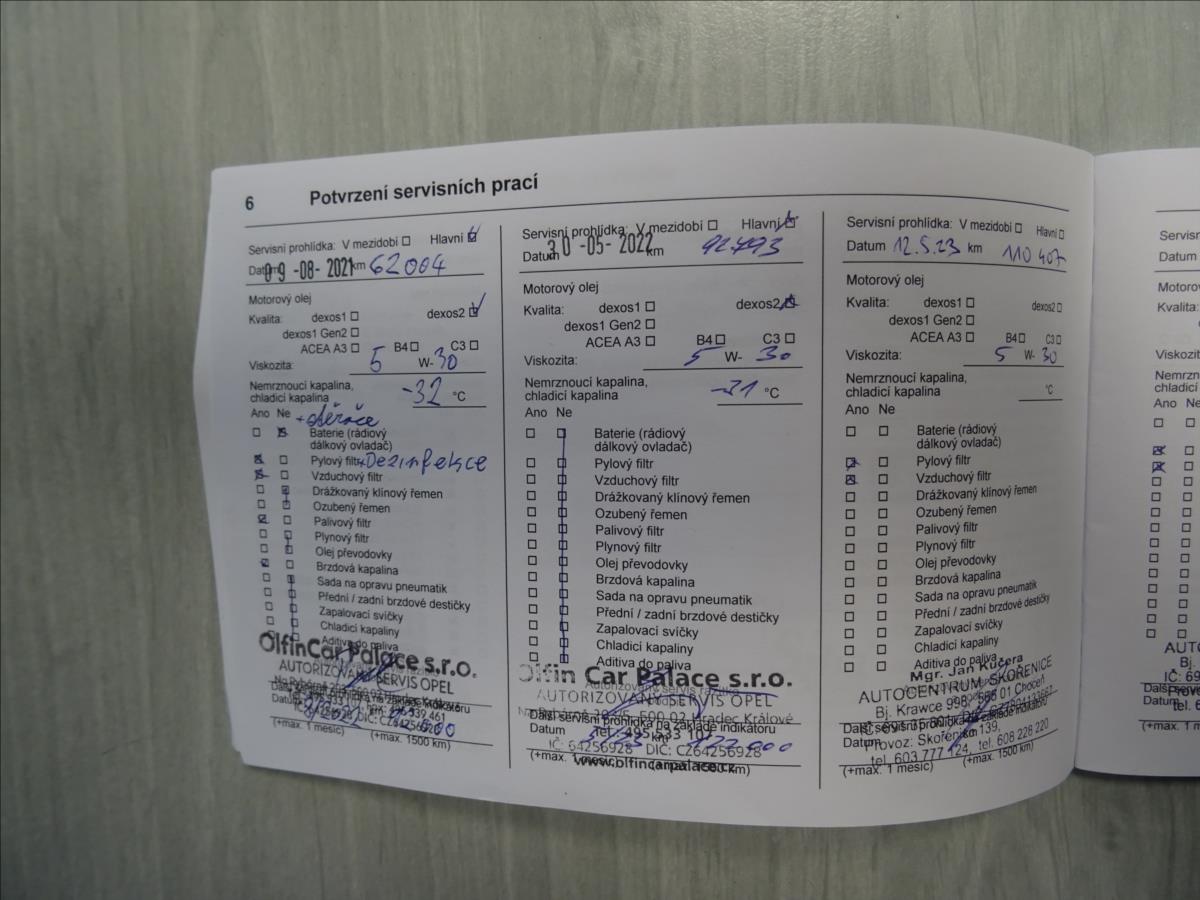 6 Potvrzení servisních prací
Servisní prohlídka: V mezidobí Hlavní
Datum 09-08-2021 km 62004
Motorový olej
Kvalita: dexos1 dexos2
dexos1 Gen2
ACEA A3 B4 C3
Viskozita: 5 W- 30
Nemrznoucí kapalina,
chladicí kapalina -32 °C
Ano Ne
+ stěrače
Baterie (rádiový
dálkový ovladač)
Pylový filtr + Dezinfekce
Vzduchový filtr
Drážkovaný klínový řemen
Ozubený řemen
Palivový filtr
Plynový filtr
Olej převodovky
Brzdová kapalina
Sada na opravu pneumatik
Přední / zadní brzdové destičky
Zapalovací svíčky
Chladicí kapaliny
Aditiva do paliva
OlfinCar Palace s.r.o.
AUTORIZOVANÝ SERVIS OPEL
Datum
DIČ: CZ64256928
(+max. 1 měsíc) (+max. 1500 km)
Servisní prohlídka: V mezidobí Hlavní
Datum 30-05-2022 km 92493
Motorový olej
Kvalita: dexos1 dexos2
dexos1 Gen2
ACEA A3 B4 C3
Viskozita: 5 W- 30
Nemrznoucí kapalina,
chladicí kapalina -31 °C
Ano Ne
Baterie (rádiový
dálkový ovladač)
Pylový filtr
Vzduchový filtr
Drážkovaný klínový řemen
Ozubený řemen
Palivový filtr
Plynový filtr
Olej převodovky
Brzdová kapalina
Sada na opravu pneumatik
Přední / zadní brzdové destičky
Zapalovací svíčky
Chladicí kapaliny
Aditiva do paliva
Olfin Car Palace s.r.o.
AUTORIZOVANÝ SERVIS OPEL
500 02 Hradec Králové
Další servisní prohlídka na základě indikátoru
Datum km
IČ: 64256928 DIČ: CZ64256928
(+max. 1 měsíc)
www.olfincarpalace.cz
Servisní prohlídka: V mezidobí Hlavní
Datum 12.5.23 km 110 407
Motorový olej
Kvalita: dexos1 dexos2
dexos1 Gen2
ACEA A3 B4 C3
Viskozita: 5 W- 30
Nemrznoucí kapalina,
chladicí kapalina °C
Ano Ne
Baterie (rádiový
dálkový ovladač)
Pylový filtr
Vzduchový filtr
Drážkovaný klínový řemen
Ozubený řemen
Palivový filtr
Plynový filtr
Olej převodovky
Brzdová kapalina
Sada na opravu pneumatik
Přední / zadní brzdové destičky
Zapalovací svíčky
Chladicí kapaliny
Aditiva do paliva
Mgr. Jan Kučera
AUTOCENTRUM SKOŘENICE
Bj. Krawce 998, 565 01 Choceň
Datum
Provoz: Skořenice 139,
tel. 603 777 124, tel. 608 228 220
(+max. 1 měsíc) (+max. 1500 km)
Servisní
Datum
Motorový
Kvalita:
Viskozita
Nemrznoucí
chladicí
Ano Ne
Bj.
IČ: 69
tel. 6
(+max. 1